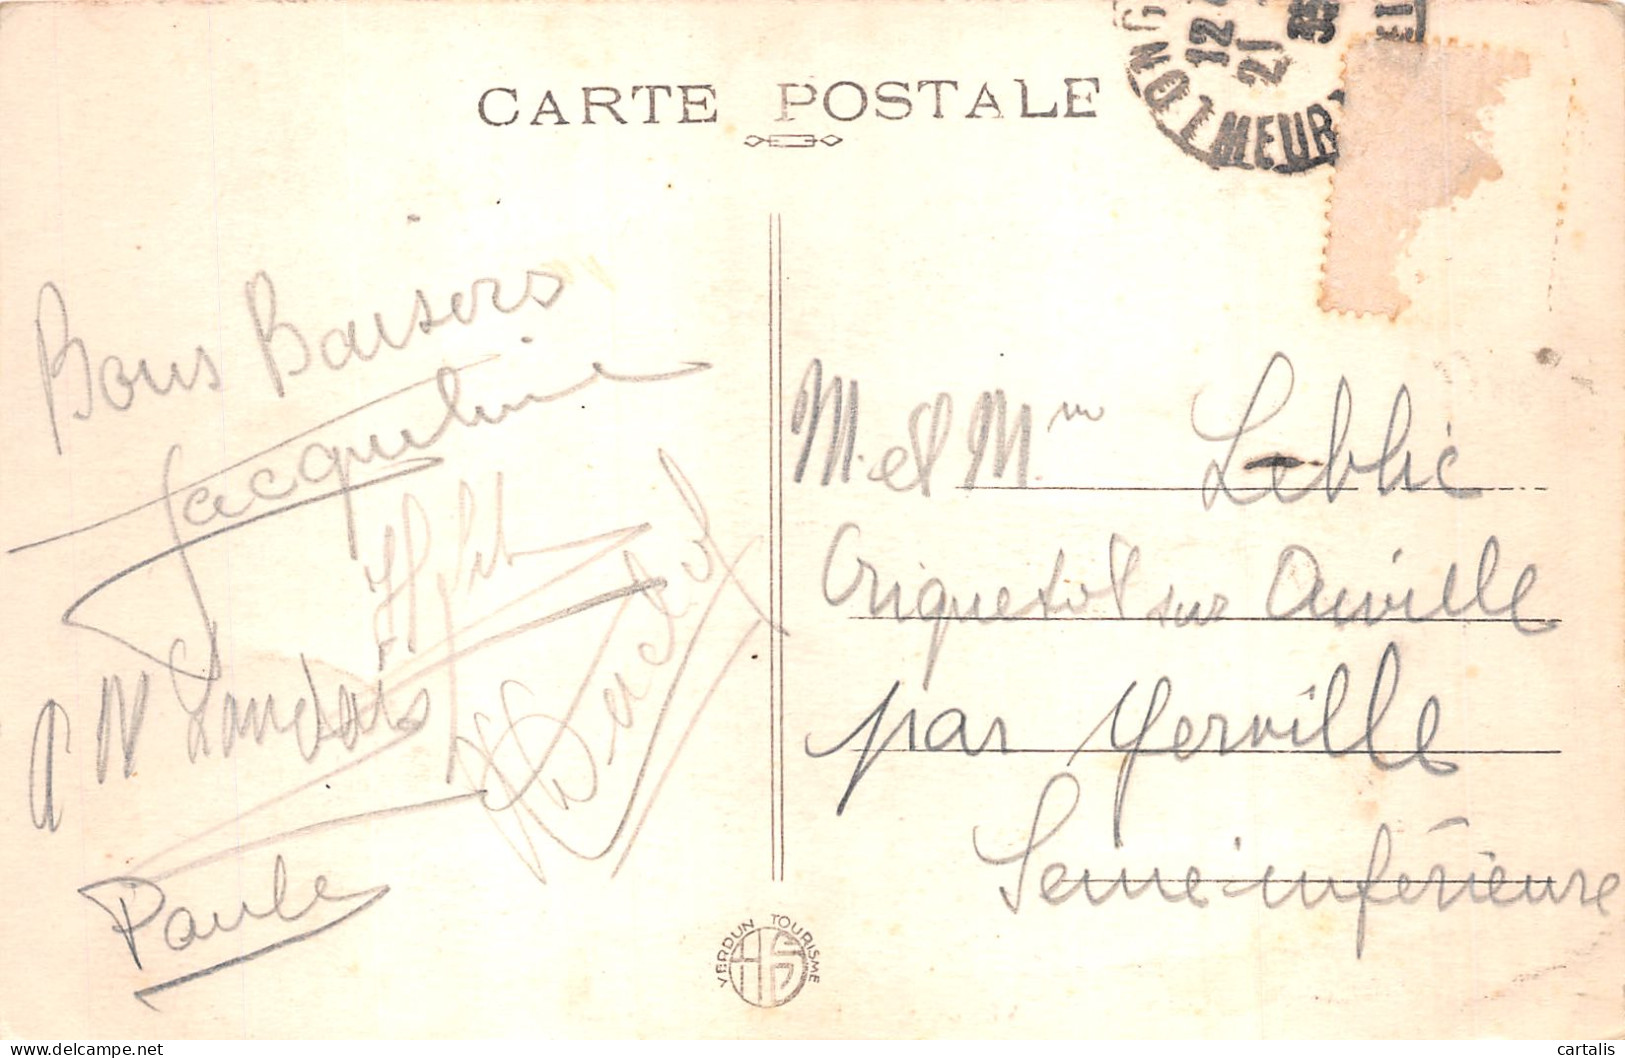 CARTE POSTALE
12
21
35
MEUR
Bons Baisers
Jacqueline
Landais
Paule
M. et Mme Leblic
Criquetot sur Ouville
par Yerville
Seine-inférieure
VERDUN TOURISME
HS
cartalis
delcampe.net